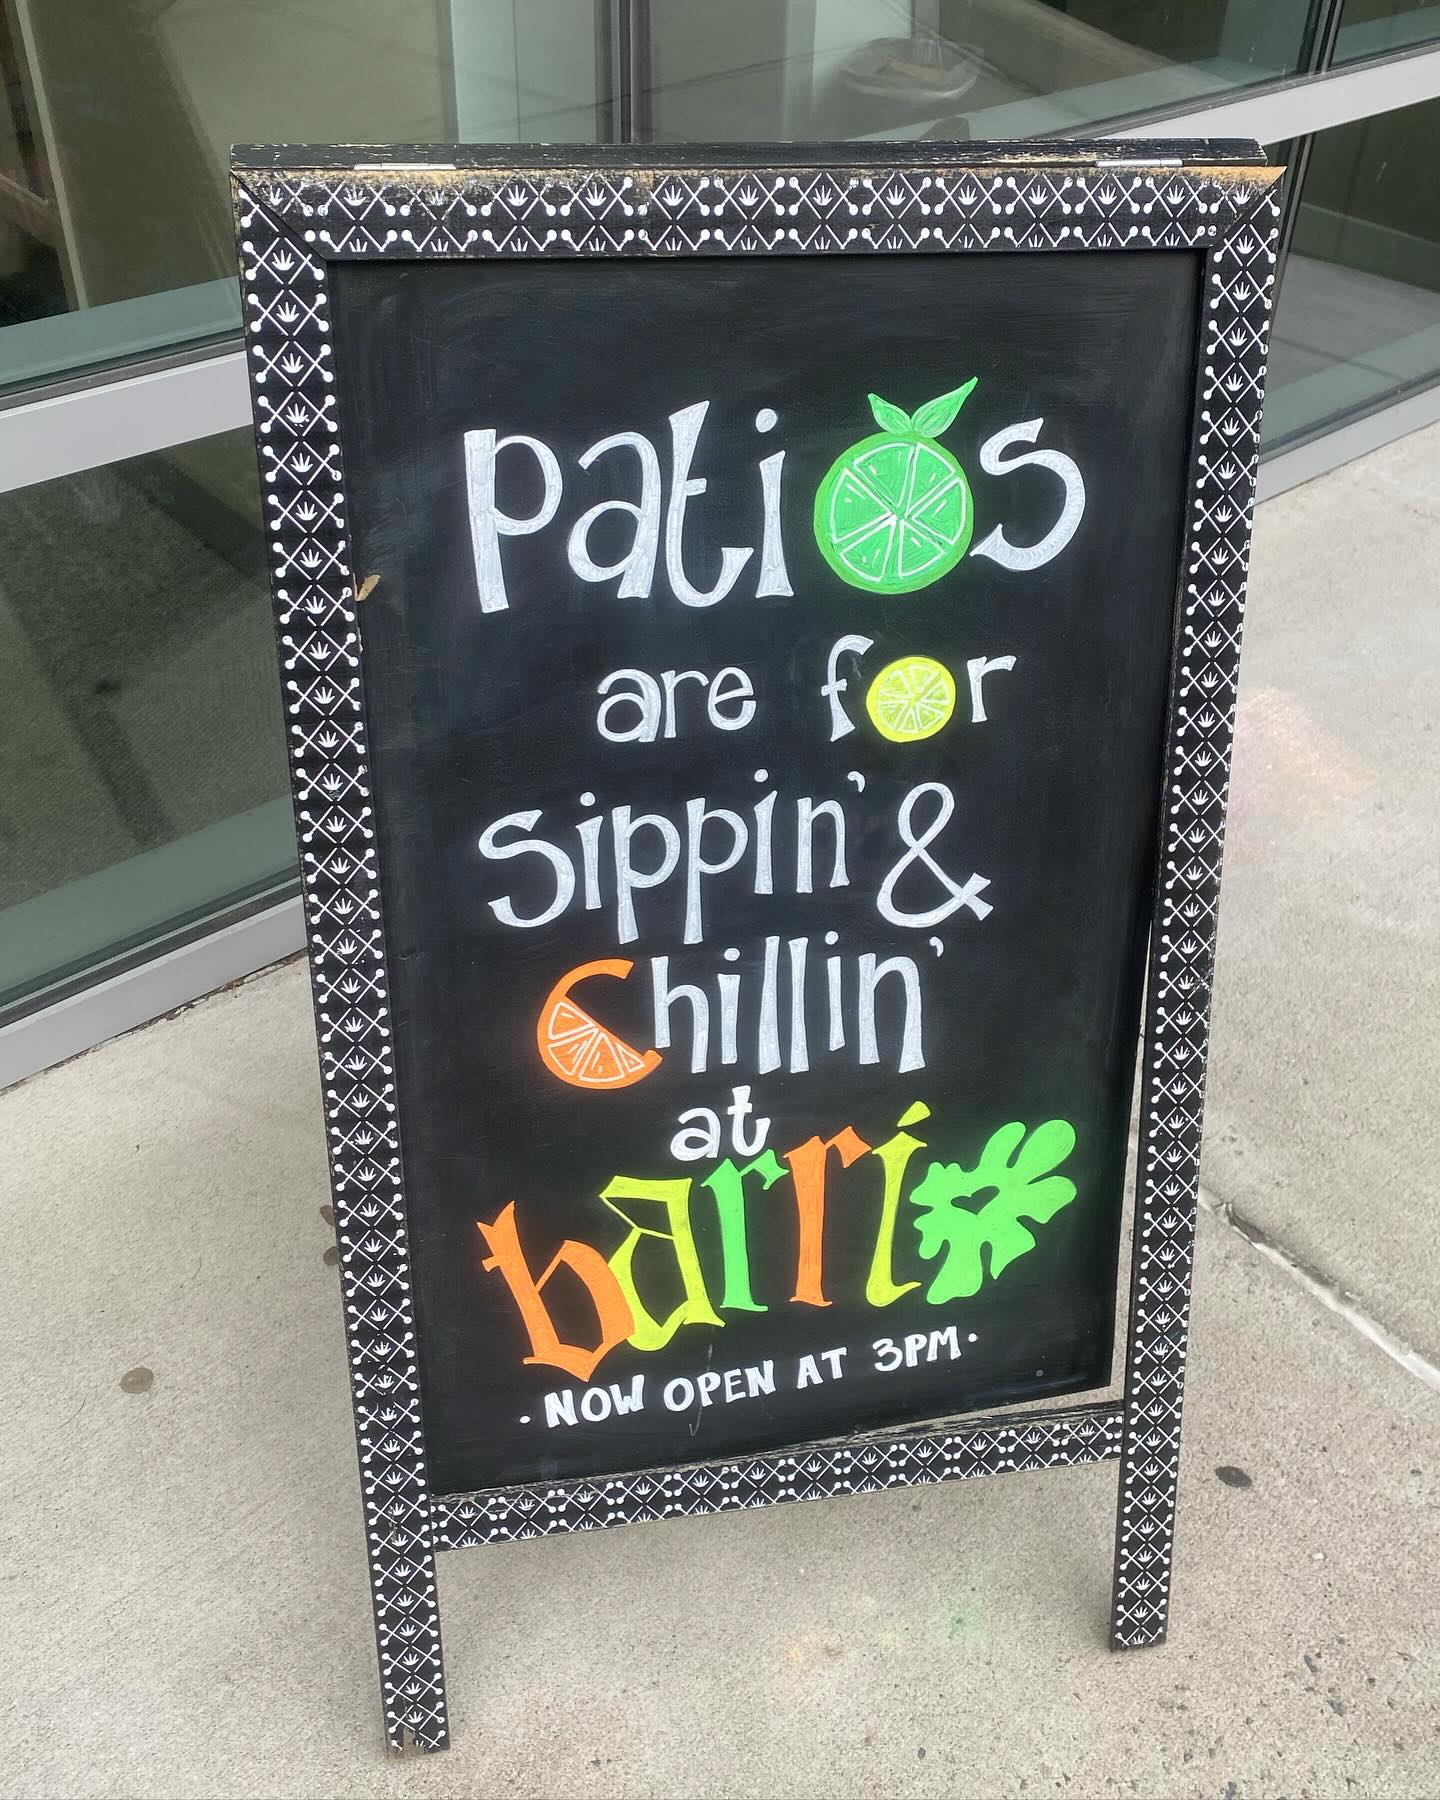 patios
are for
sippin' &
Chillin'
at
barrio
· NOW OPEN AT 3PM ·